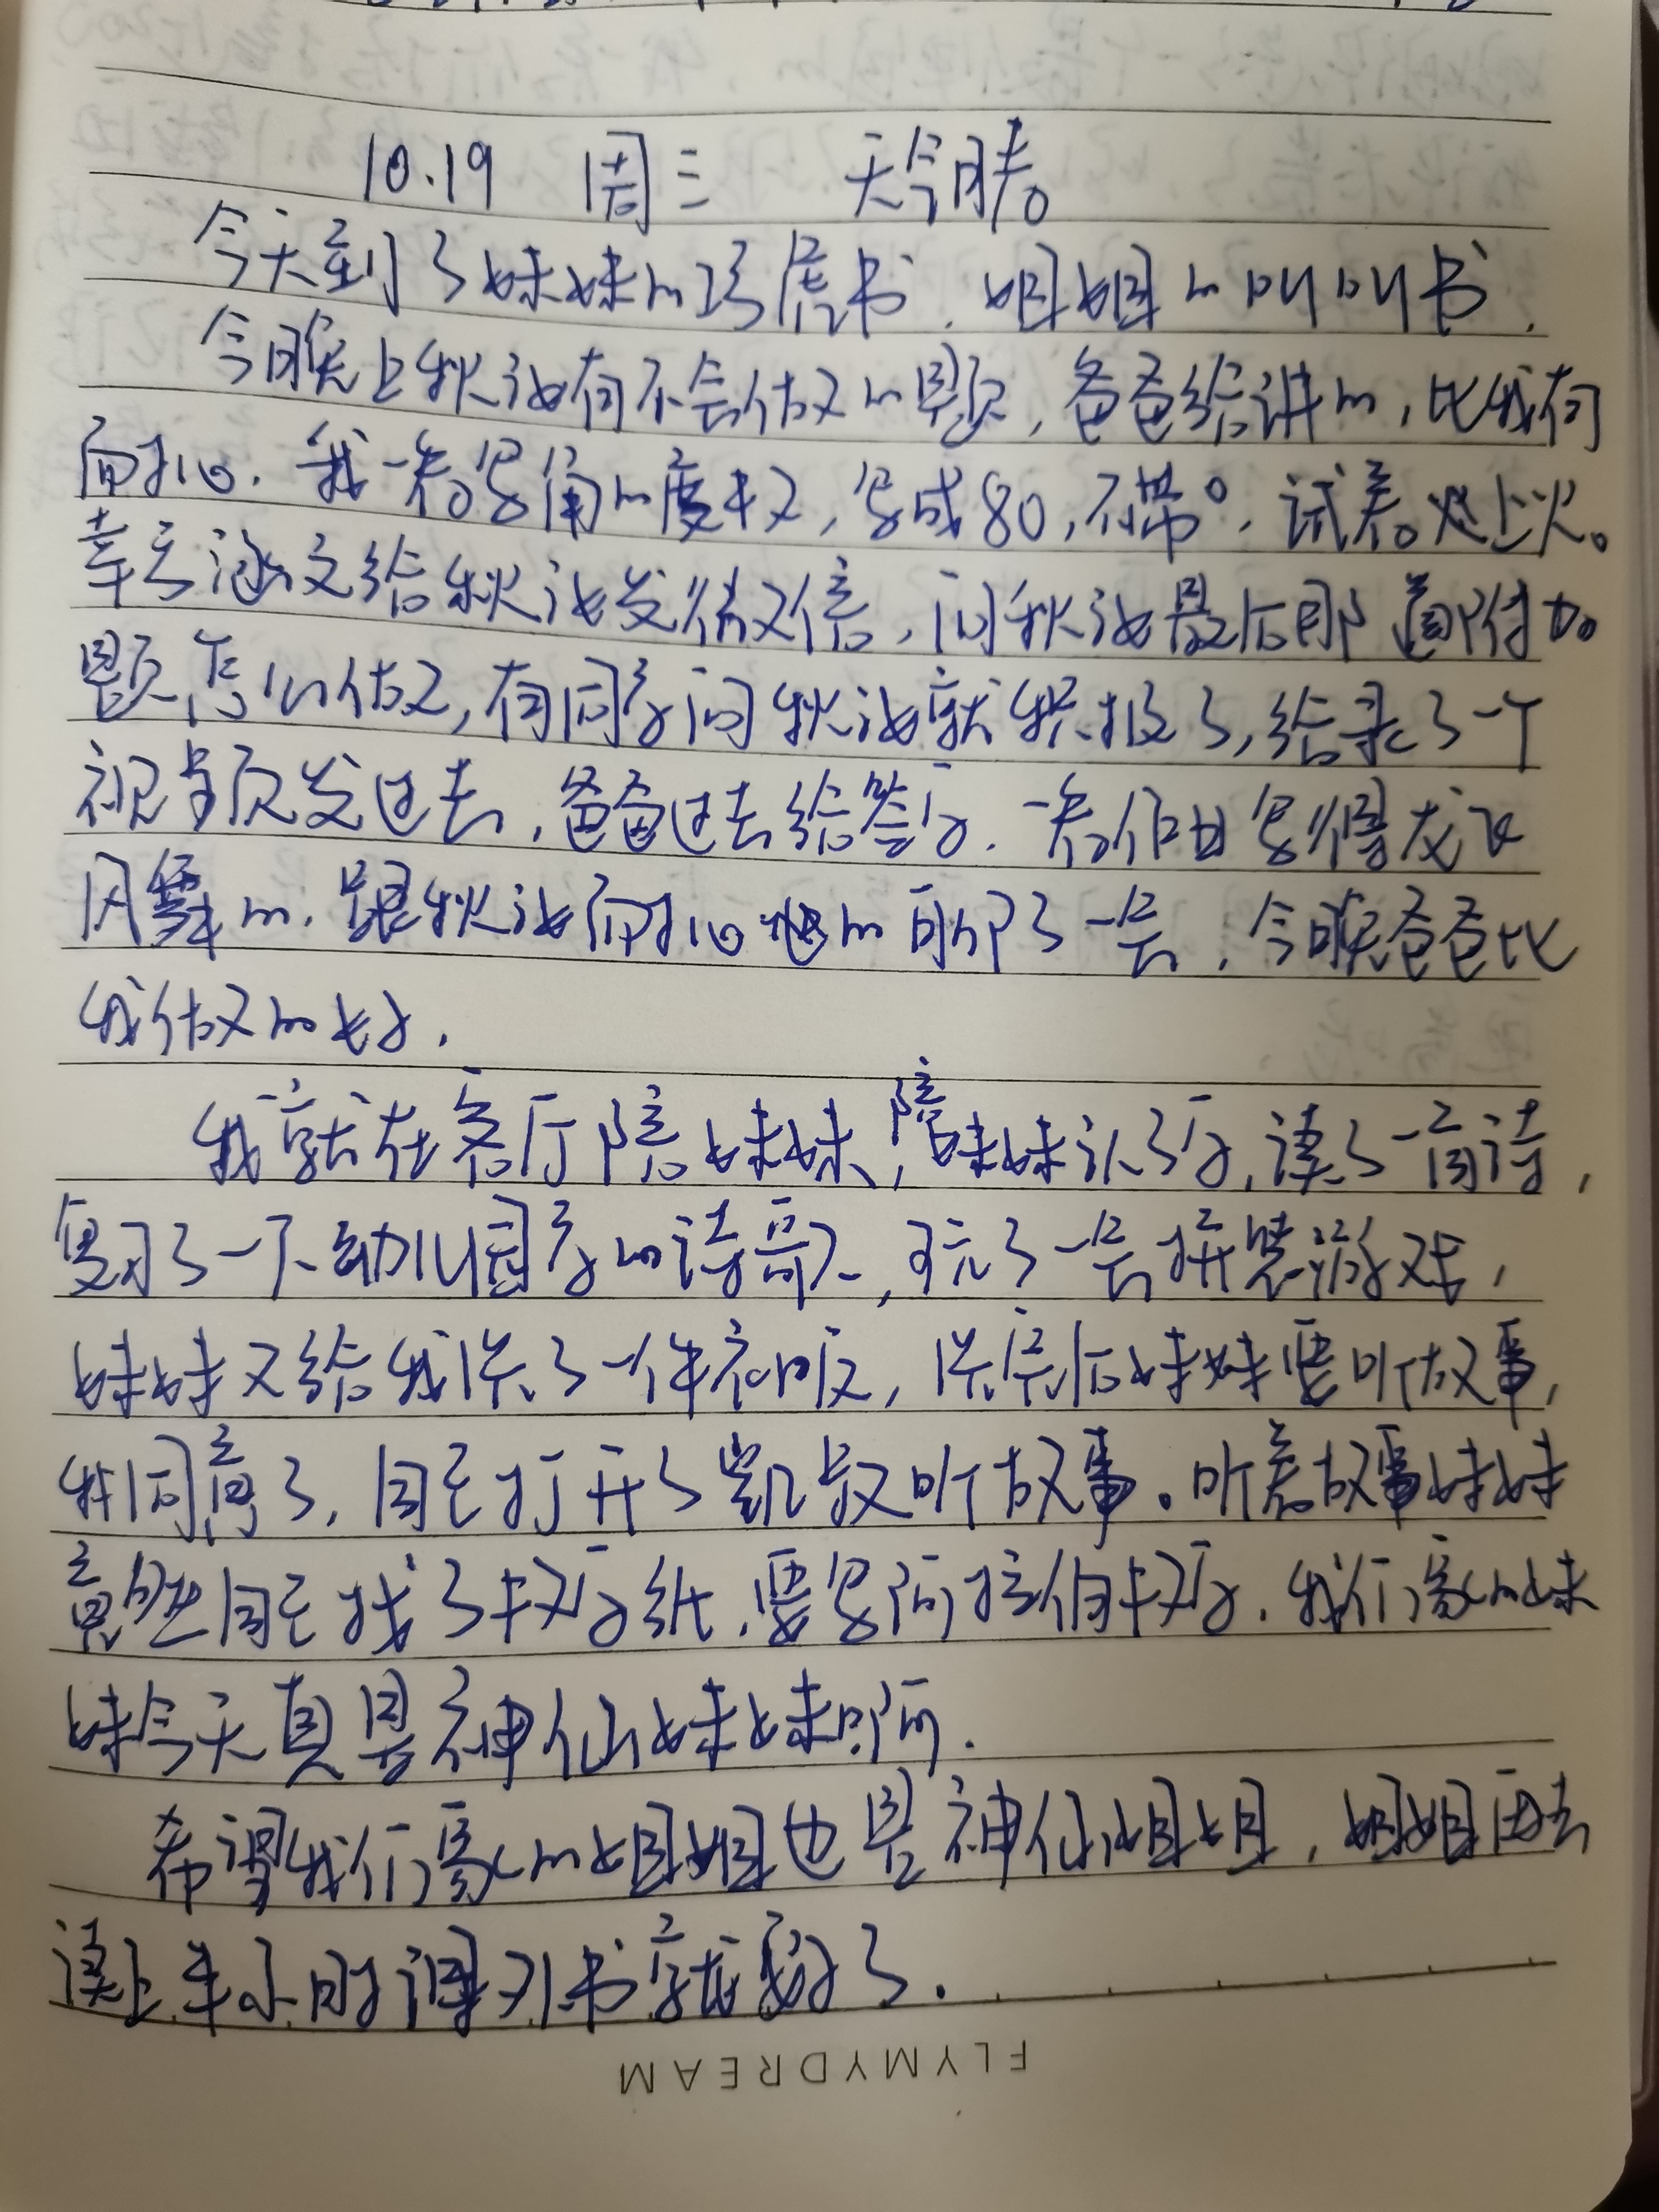 10.19 周三 天气晴。
今天到了妹妹的巧虎书,姐姐的叫叫书,
今晚上秋池有不会做的题,爸爸给讲的,比我有
耐心。我一看写角的度数,写成80,不带°,试着处上火。
幸云涵又给秋池发微信,问秋池最后那道附加
题怎么做,有同学问秋池就积极了,给录了一个
视频发过去,爸爸过去给签字,一看作业写得龙飞
凤舞的,跟秋池耐心地的聊了一会,今晚爸爸比
我做的好。
我就在客厅陪妹妹,陪妹妹认字,读了一首诗,
复习了一下幼儿园学的诗歌,玩了一会拼装游戏,
妹妹又给我洗了一件衣服,洗完后妹妹要听故事,
我同意了,自己打开了凯叔听故事。听着故事妹妹
竟然自己找了数字纸,要写阿拉伯数字。我们家的妹
妹今天真是神仙妹妹啊。
希望我们家的姐姐也是神仙姐姐,姐姐再去
读上半小时课外书就更好了。
FLYMYDREAM